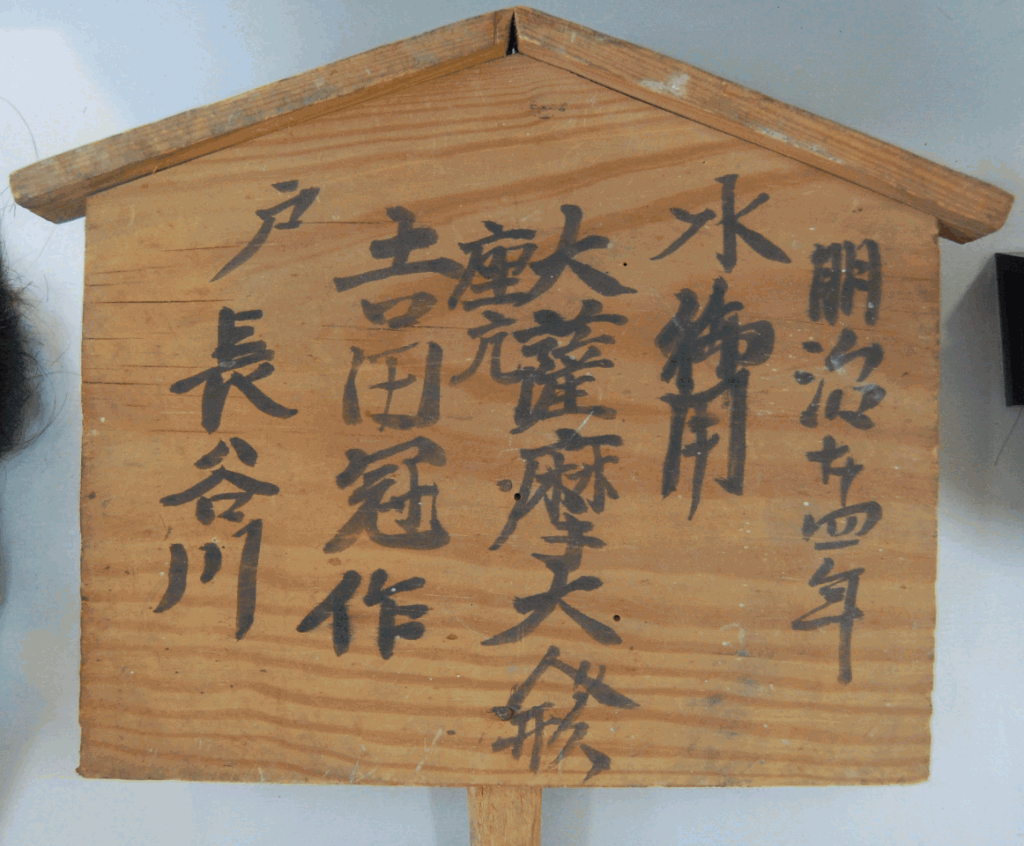 明治廿四年
水御用
大薩摩大
座元
吉田冠作
戸長谷川